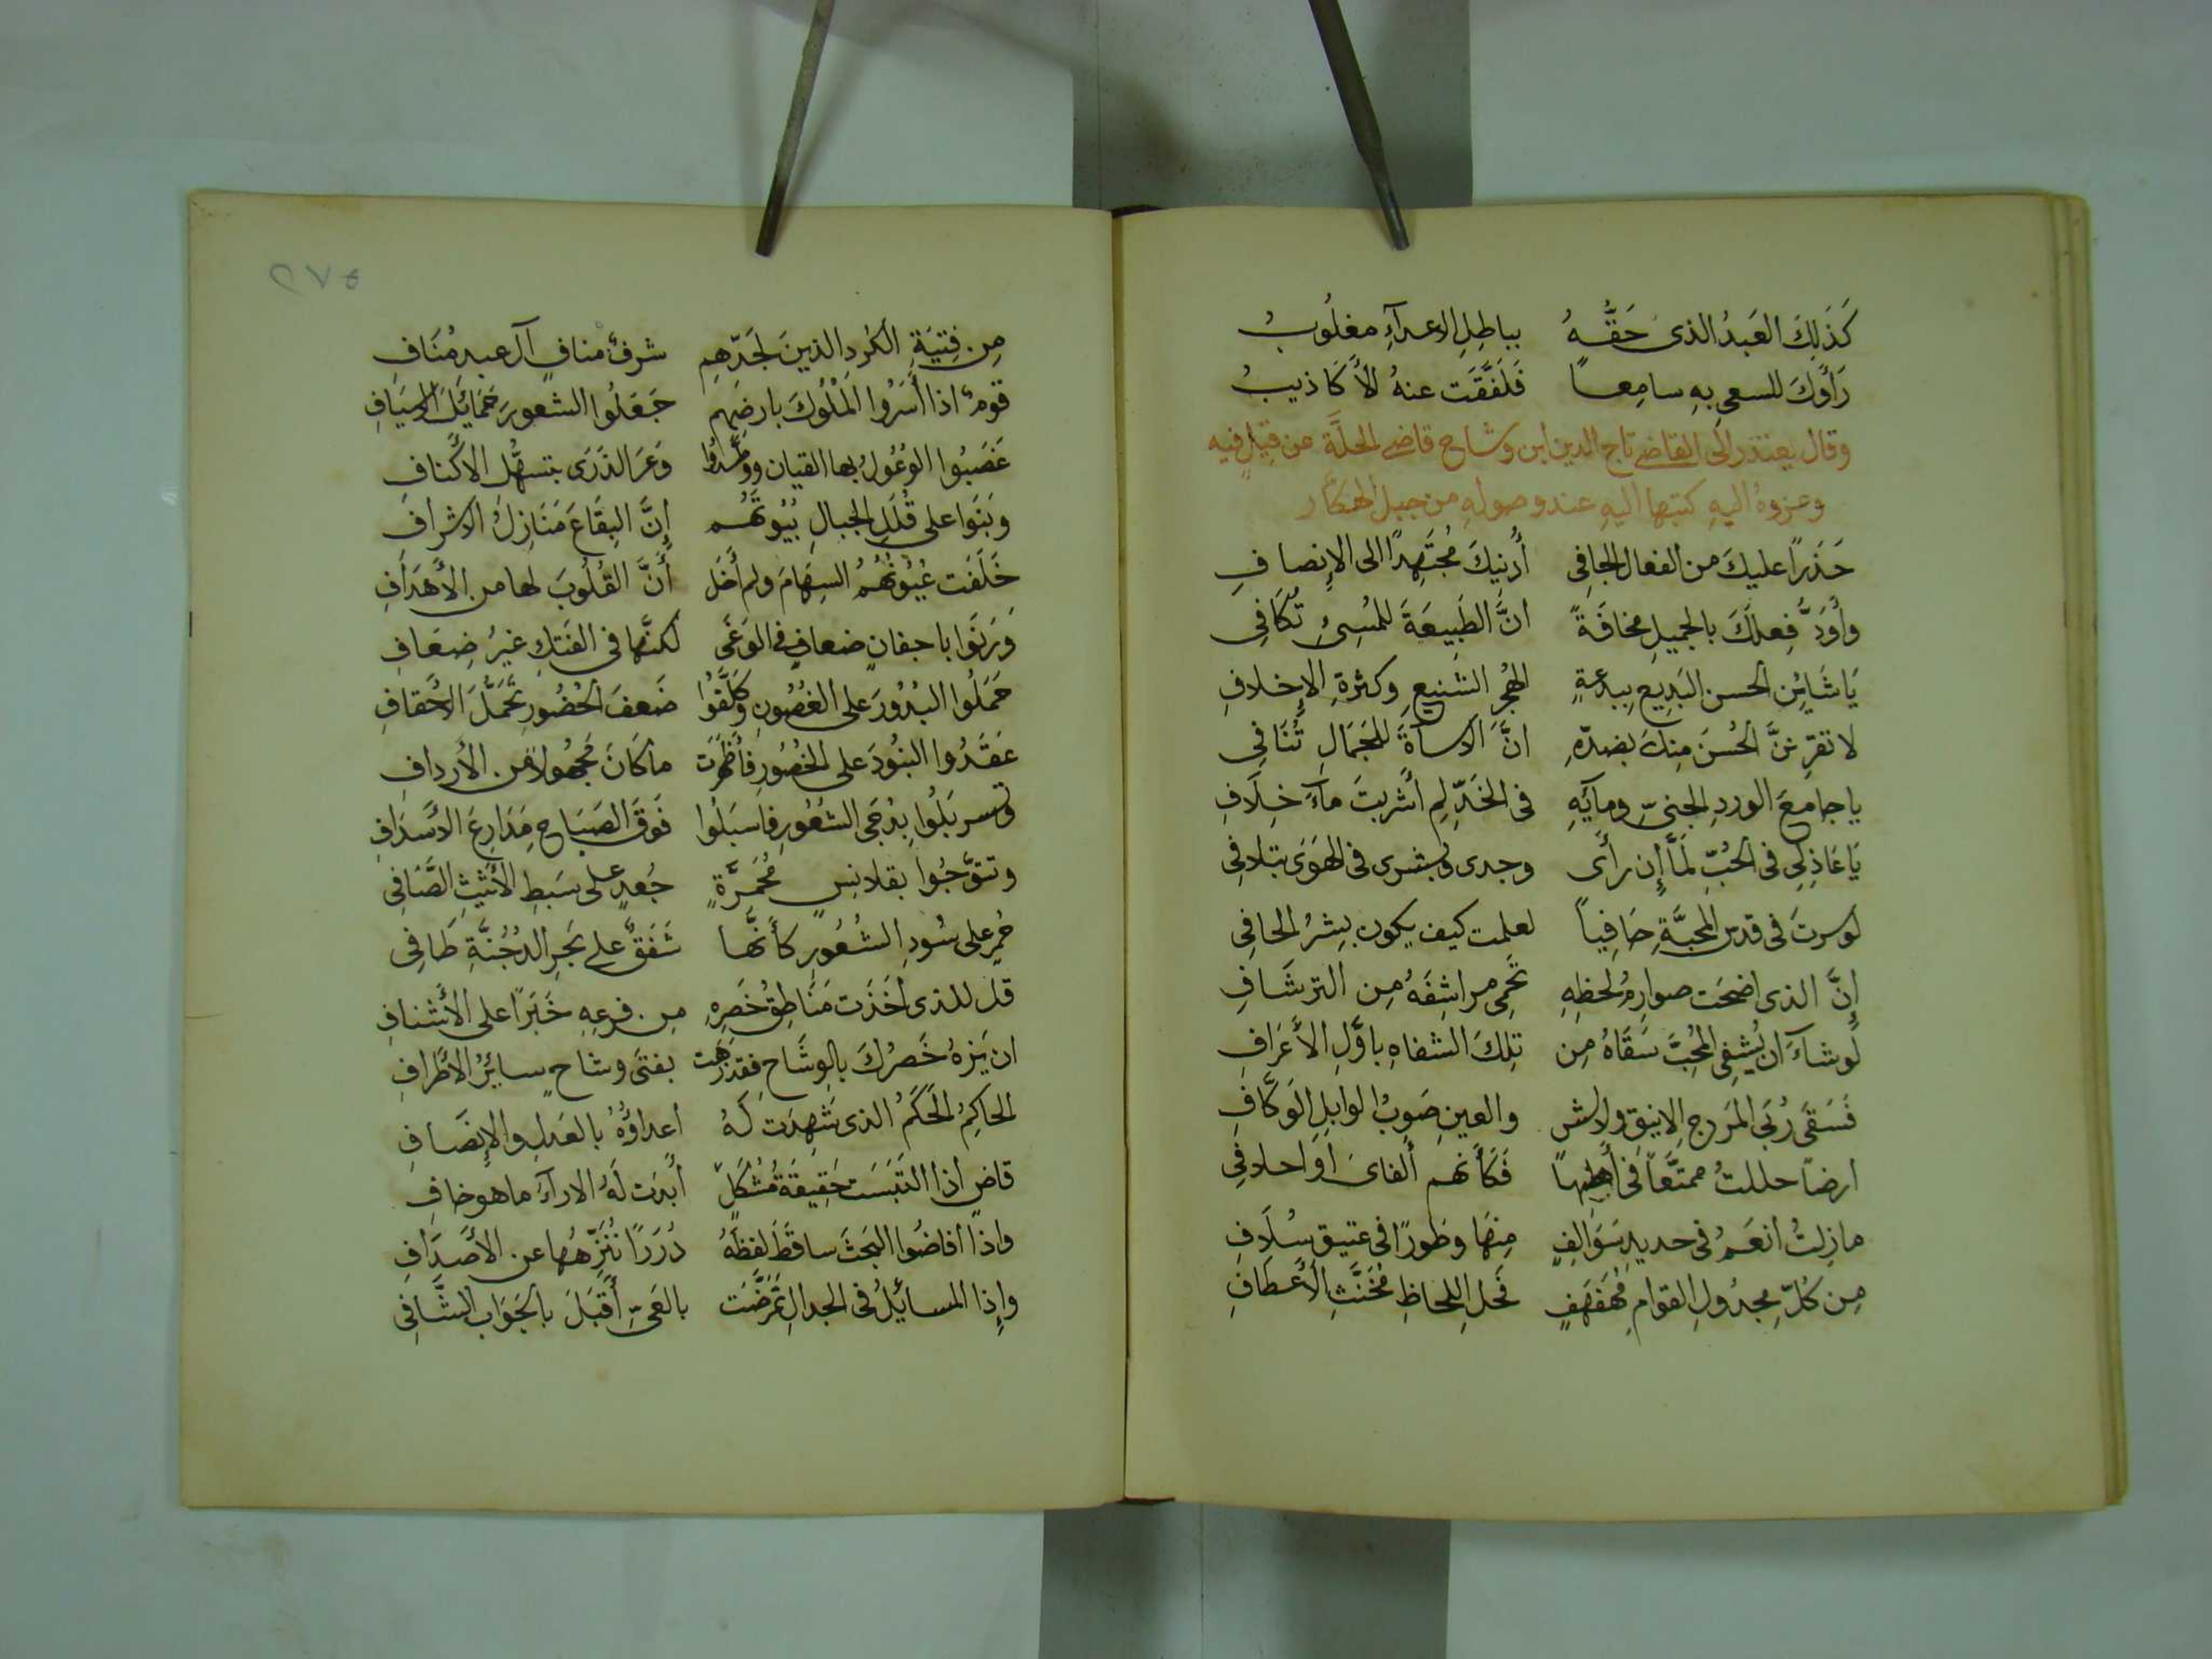 كَذَلِكَ العَبدُ الذى حَقُّهُ بباطِلِ الاعدآءِ مغلُوبُ
رَأَوكَ للسعىِ بهِ سامِعاً فَلَفَّقَت عنهُ الأَكَاذيبُ
وقال يعتذر الى القاضى تاج الدين ابن وشاح قاضى الحلَّة عن قيلٍ فيه
وعزوهُ اليهِ كتبها اليهِ عند وصولهِ من جبل الهكّار
حَذَراً عليكَ من الفعال الجافِى أُدنِيكَ مُجتَهِدًا الى الإِنصافِ
وأَوَدُّ فِعلَكَ بالجميلِ مخافَةً انَّ الطَبِيعَةَ للمُسِىْءِ تُكَافِى
يَا شَايِنَ الحسن البَدِيعِ بِبدعَةٍ الهُجرِ الشنيعِ وكثرةِ الإِخلافِ
لا تقرِننَّ الحُسنَ مِنكَ بضدّهِ انَّ الاسآةَ للجَمَالِ تُنَافِى
يا جامعَ الوردِ الجنىِّ ومآئِهِ فى الخَدِّ لِم أَشربتَ مآءَ خِلَافِ
يَا عَاذِلِى فى الحُبِّ لَمَّا إن رأَى وجدى وبشرى فى الهَوَى بتلافِى
لو سرتَ فى قدس المحبَّةِ حَافِياً لعلمت كيف يكون بِشرُ الحافِى
إنَّ الذى اضحَت صوارِمُ لحظِهِ تَحمِى مراشِفَهُ مِن الترشَافِ
لو شآءَ ان يُشفِى المُحِبَّ سَقَاهُ مِن تلِكَ الشفاهِ باوَّلِ الأَعرَافِ
فَسَقَى رُبَى المَرجِ الانيقِ ولالش والعينِ صَوبُ الوابلِ الوَكَّافِ
ارضاً حللتُ ممتَّعاً فى أهلِها فَكَأنهم ألفاىَ أو احلافِى
مازِلتُ انعَمُ فى حديدِ سَوَالِفٍ مِنهَا وطَورًا فى عتيق سُلَافِ
مِن كُلِّ مجدُولِ القوامِ مُهَفهَفٍ فَحلِ اللحاظِ مُخَنَّثِ الأَعطَافِ
٢٧٥
مِن فِتيَةِ الكُردِ الذينَ لجَدّهِم شرفُ منافٍ آلَ عبدِ مُنَافِ
قومٌ اذا أَسَرُوا المُلُوكَ بارضِهم جَعَلُوا الشعورَ حَمَايِلَ الاسيَافِ
غَصَبُوا الوُعُولَ بها القيان ووطَّدُوا وَعَرَ الذَرَى بتسهُّل الاكنافِ
وبَنَوا على قُلَلِ الجبالِ بُيُوتَهُم إنَّ البِقَاعَ مَنَازِلُ الاشرافِ
خَلَفَت عُيُونُهُمُ السِهَامَ ولم أَخَل أَنَّ القُلُوبَ لها من الأَهدَافِ
وَرَنَوا باجفانٍ ضعافٍ فى الوَغَى لكنَّها فى الفَتكِ غيرُ ضِعَافِ
حَمَلُوا البُدُورَ على الغُصُونِ وَكَلَّفُوا ضَعفَ الخُصُورِ تَحَمُّلَ الاحقافِ
عَقَدُوا البنُودَ على الخُصُورِ فأَظهَرَت ما كَانَ مَجهُولاً مِن الأَردافِ
وتسربَلُوا بِدُجَى الشعُورِ فاسبَلُوا فَوقَ الصَبَاحِ مَدَارِعَ الأَسدَافِ
وتتوَّجُوا بقلانِسٍ مُحمَرَّةٍ جُعدٍ على سَبَطِ الأَثيثِ الضَّافِى
حُمرٍ على سُودِ الشُعُورِ كأَنَّها شَفَقٌ على بَحرِ الدُجُنَّةِ طَافِى
قل للذى اخَذَت مَنَاطِقُ خَصرِهِ مِن فرعِهِ خَبَرًا على الأَشنافِ
ان يَزهُ خَصرُكَ بالوِشَاحِ فقد زهَت بفتَى وشاحٍ سائِرُ الأَطرَافِ
الحاكِمُ الحَكَمُ الذى شَهِدَت لَهُ أعداؤُهُ بالعَدلِ والإِنصَافِ
قاضٍ اذا التَبَسَت حَقِيقَةُ مُشكَلٍ أَبدَت لَهُ الارآءُ ما هو خافِ
واذا افاضُوا البَحثَ ساقَطَ لَفظَهُ دُرَرًا نُنَزِّهُها عن الأَصدَافِ
وإِذا المسائِلُ فى الجدالِ تَمَرَّضَت بالعَىِّ أَقبَلَ بالجَوَابِ الشَّافِى